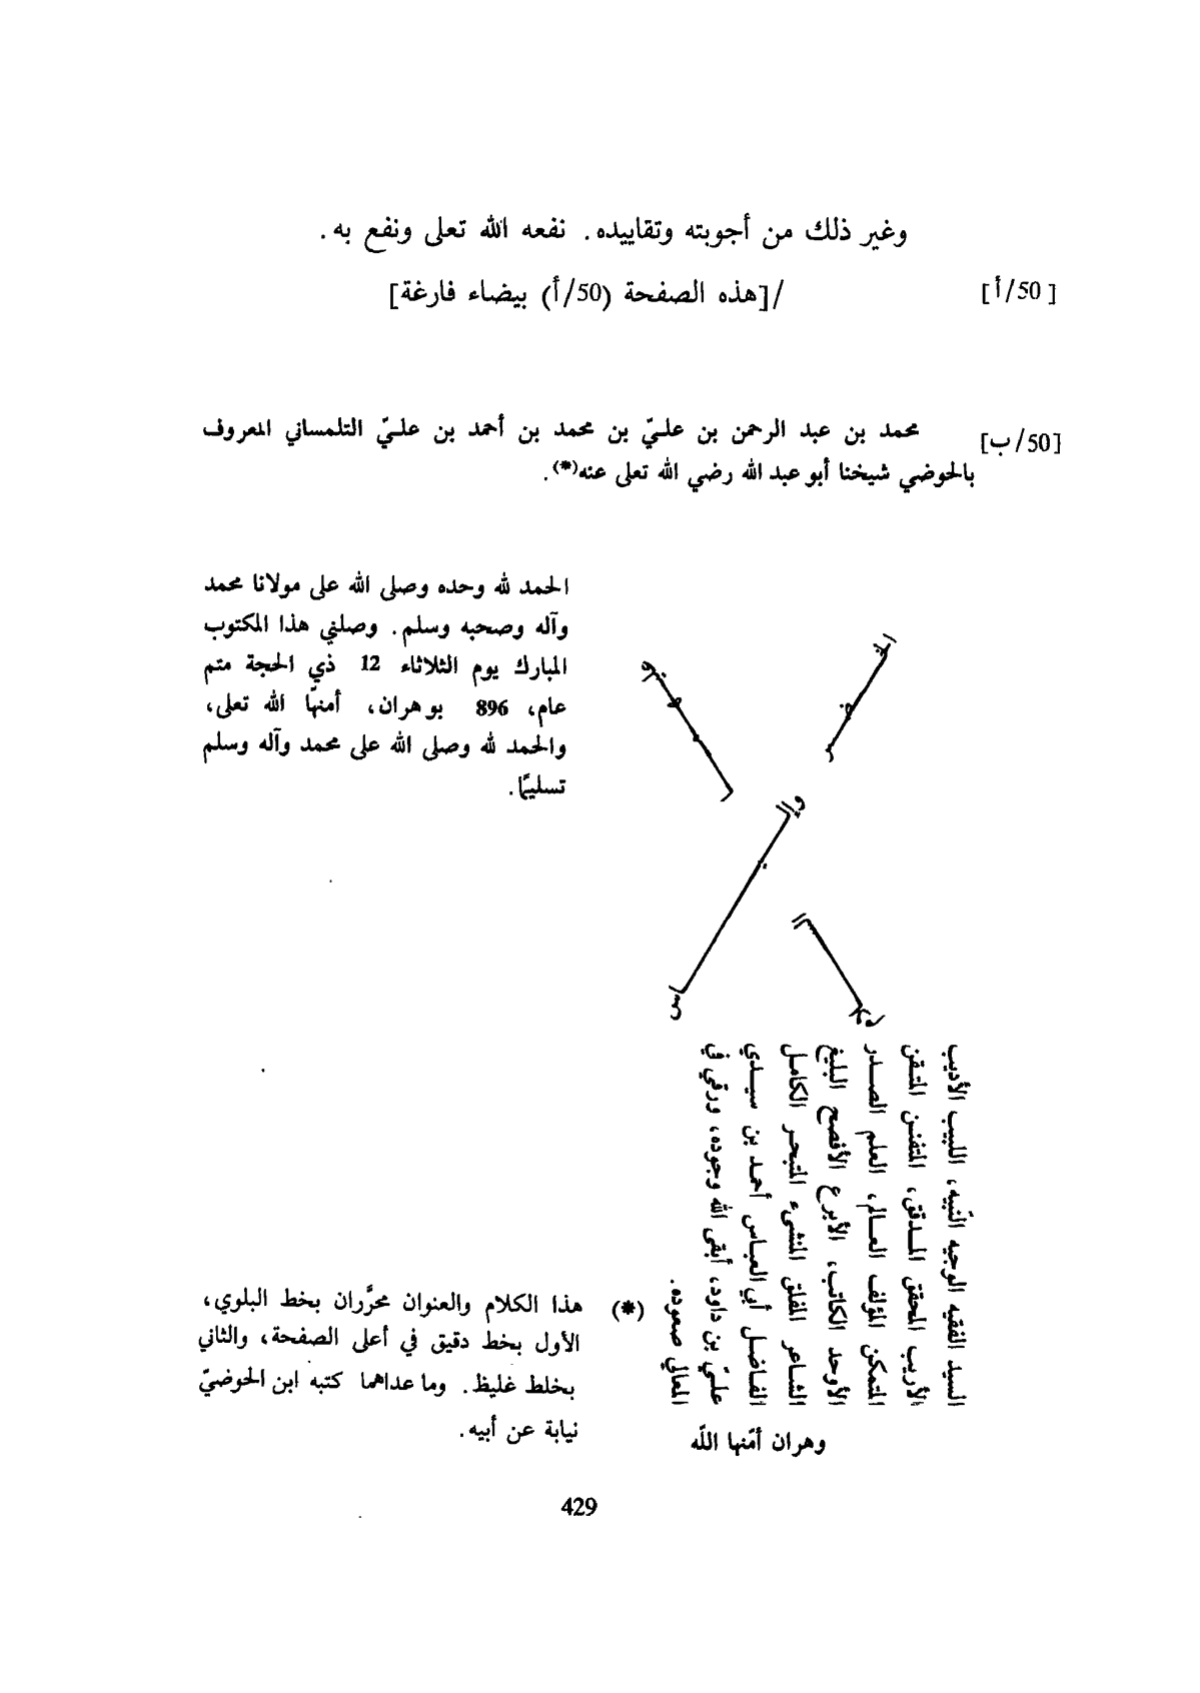 وغير ذلك من أجوبته وتقاييده. نفعه الله تعالى ونفع به.
[50/أ] /[هذه الصفحة (50/أ) بيضاء فارغة]
[50/ب] محمد بن عبد الرحمن بن عليّ بن محمد بن أحمد بن عليّ التلمساني المعروف
بالحوضي شيخنا أبو عبد الله رضي الله تعالى عنه(*).
الحمد لله وحده وصلى الله على مولانا محمد
وآله وصحبه وسلم. وصلني هذا المكتوب
المبارك يوم الثلاثاء 12 ذي الحجة متم
عام، 896 بوهران، أمنهّا الله تعلى،
والحمد لله وصلى الله على محمد وآله وسلم
تسليمًا.
السيد الفقيه الوجيه النّبيه، اللبيب الأديب
الأريب المحقق المـدقق، المتفنـن المتـقن
المتمكن المؤلف العـالم، العلم الصـدر
الأوحد الكاتب، الأبرع الأفصح البليغ
الشـاعر المفلق المنشىء المتبحـر الكامـل
الفـاضـل أبي العبـاس أحمـد بن سيـدي
عليّ بن داود، أبقى الله وجوده، ورقي في
المعالي صعوده.
وهران أمّنها اللّه
(*) هذا الكلام والعنوان محرَّران بخط البلوي،
الأول بخط دقيق في أعلى الصفحة، والثاني
بخلط غليظ. وما عداهما كتبه ابن الحوضيّ
نيابة عن أبيه.
429